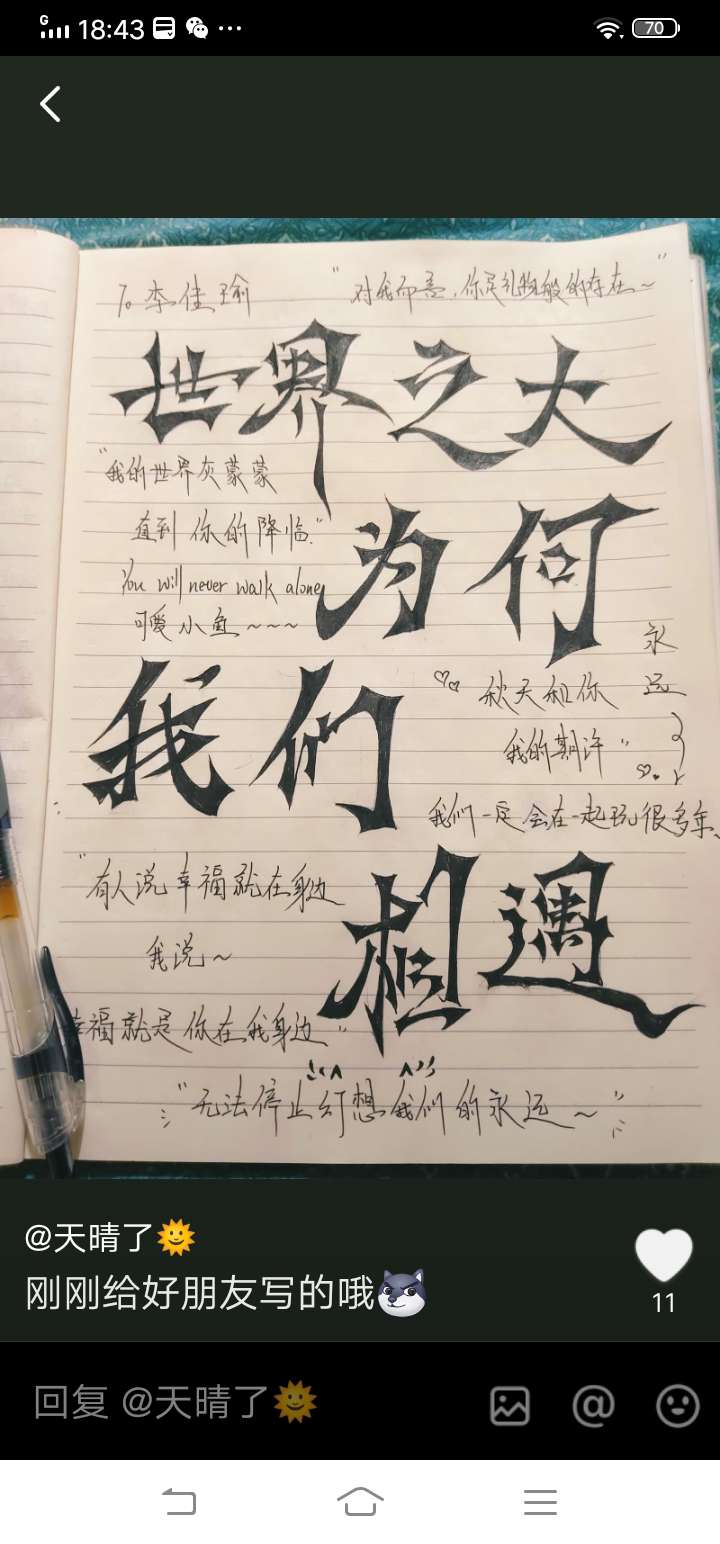 18:43
70
To 李佳瑜
"对我而言，你是礼物般的存在~"
世界之大
"我的世界灰蒙蒙
直到你的降临"
为何
You will never walk alone
可爱小鱼~~~
永远
我们
秋天和你
我的期许"
我们一定会在一起玩很多年
"有人说幸福就在身边
相遇
我说~
幸福就是你在我身边"
"无法停止幻想我们的永远~"
@天晴了🌞
刚刚给好朋友写的哦
11
回复 @天晴了🌞